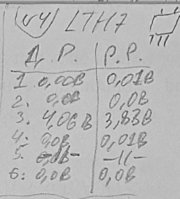 (U4) LTH7
Д.Р. Р.Р.
1 0,00В 0,01В
2: 0,0В 0,0В
3. 4,06В 3,88В
4: 0,0В 0,01В
5. -//-
6: 0,0В 0,0В